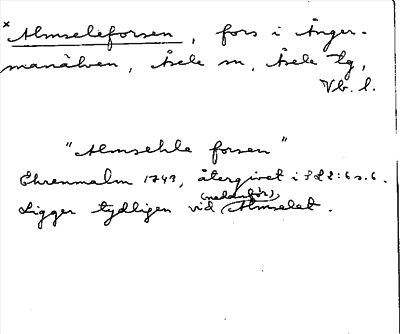 x Almseleforsen, fors i Ånger-
manälven, Åsele sn, Åsele lg,
Vb. l.
"Almsehle forsen"
Ehrenmalm 1743, återgivet i PL 2:6 s. 6.
(nedanför)
Ligger tydligen vid Almselet.